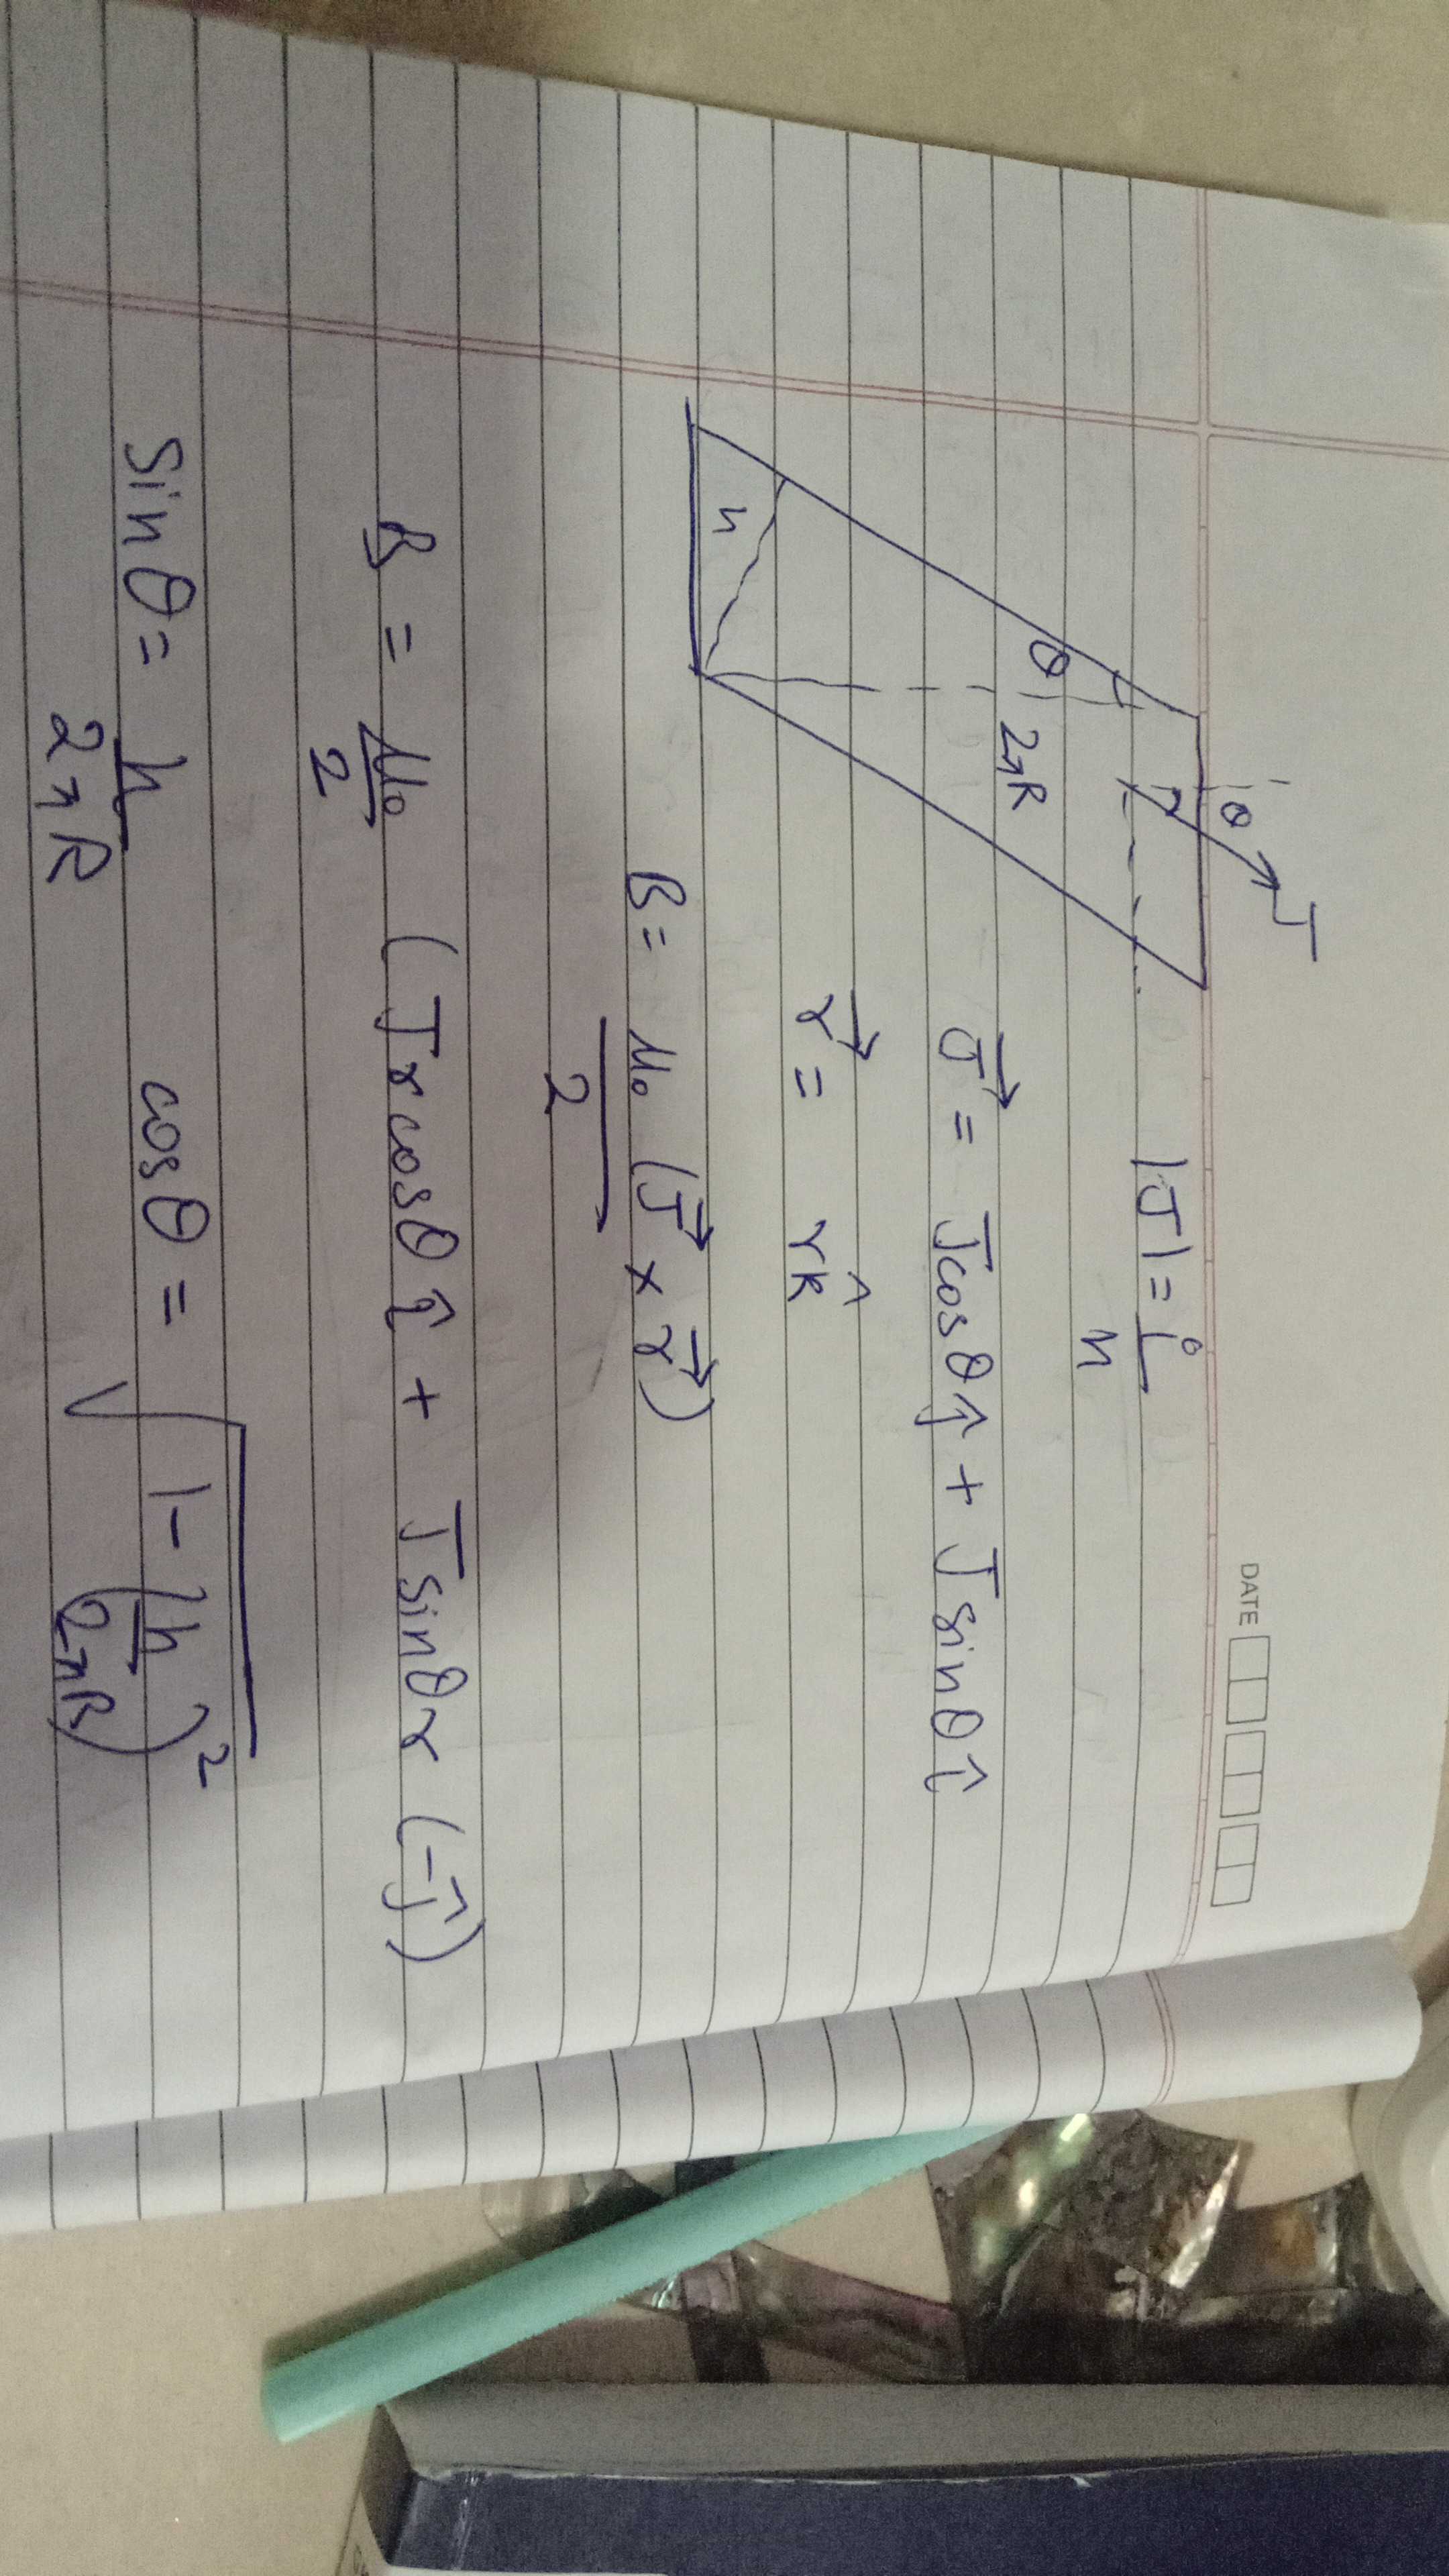 DATE
θ
J
θ
2πR
h
|J| = i/h
J⃗ = Jcosθ ĵ + Jsinθ î
r⃗ = r k̂
B = μ₀/2 (J⃗ × r⃗)
B = μ₀/2 (Jr cosθ î + Jsinθ r (-ĵ))
sinθ = h/2πR cosθ = √(1-(h/2πR)²)